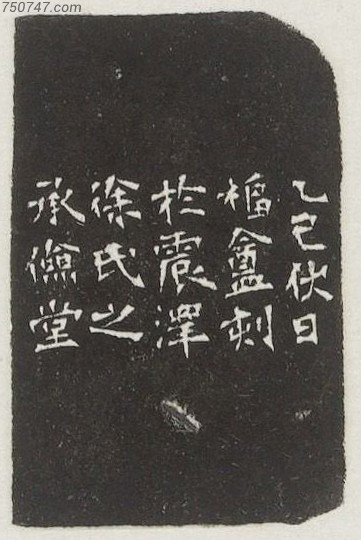 750747.com
乙巳伏日
楅盦刻
於震澤
徐氏之
承儉堂